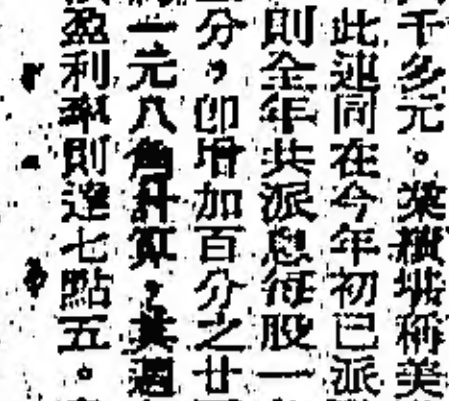 千多元。業績堪稱美
此連同在今年初已派
則全年共派息每股一
分,即增加百分之廿
一元八角計算,其週
盈利率則達七點五。